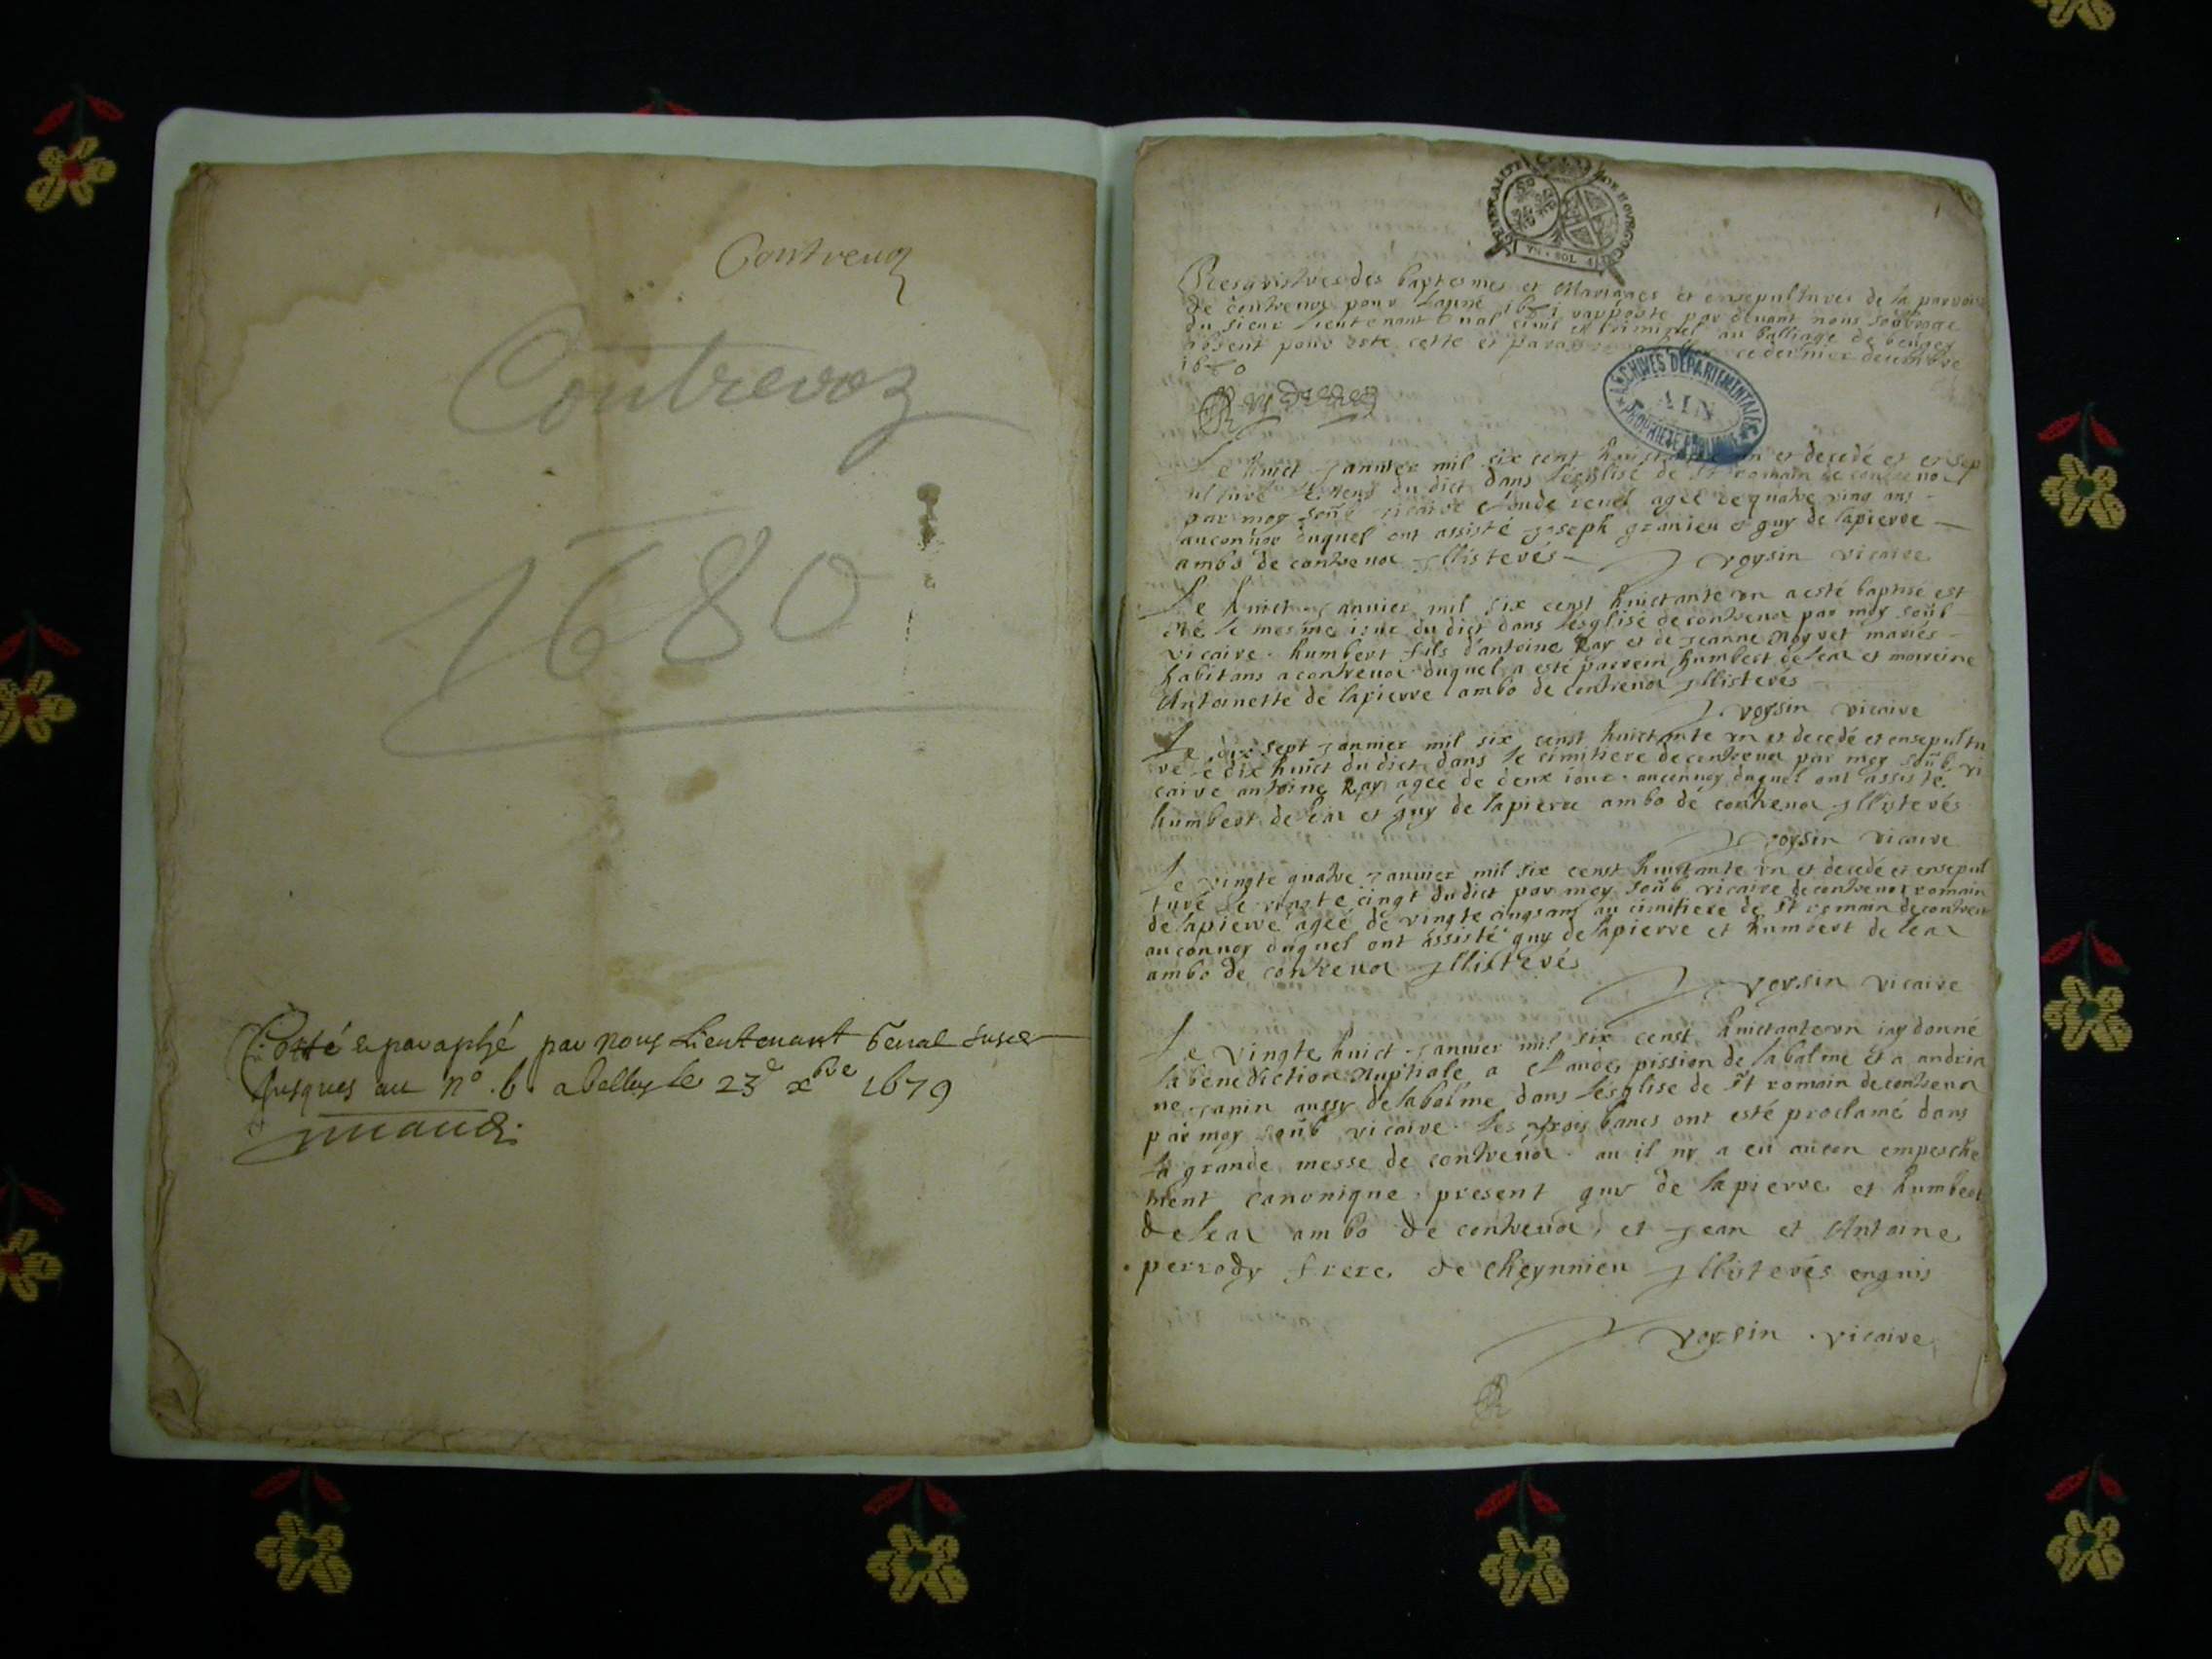 Contrevoz
Contrevoz
1680
Cotté & paraphé par nous Lieutenant
Jusques au n° .6. a belley le 23e xbre 1679
GENERALITE DE BOURGOGNE
VN SOL 4
1
Resgistres des baptesmes et Mariages et ensepultures de la parroisse
de contrevoz pour lanné 1681 par devant nous
du sieur lieutenant civil et criminel au balliage de beugey
absent pour cotte ce dernier decembre
1680
ARCHIVES DEPARTEMENTALES
AIN
PROPRIETE PUBLIQUE
Le huict janvier mil six cent huictante un et decedé et ensep
ulturé le neuf du dict dans lesglise de st romain de contrevoz
par moy soub vicaire agée de quatre ving ans
au connoy duquel ont assisté joseph granieu et guy de lapierre
ambo de contrevoz jllisterés
voysin vicaire
Le huict janvier mil six censt huictante un a esté baptisé est
né le mesme jour du dict dans lesglise de contrevoz par moy soub
vicaire humbert fils dantoine Ray et de jeanne moyvet mariés
habitans a contrevoz duquel a esté parrein humbert de leaz et marreine
Antoinette de lapierre ambo de contrevoz jllisterés
voysin vicaire
Le dix sept janvier mil six censt huictante un et decedé et ensepultu
ré le dix huict du dict dans le cimitiere de contrevoz par moy soub vi
caire antoine Ray agée de deux jour au connoy duquel ont assisté
humbert de leaz et guy de lapierre ambo de contrevoz jllisterés
voysin vicaire
Le vingte quatre janvier mil six censt huictante un et decedé et ensepul
turé le vingte cinqt du dict par moy soub vicaire de contrevoz romain
de lapierre agée de vingte cinq ans au cimitiere de st romain de contrevoz
au connoy duquel ont assisté guy de lapierre et humbert de leaz
ambo de contrevoz jllisterés
voysin vicaire
Le vingte huict janvier mil six censt huictante un jay donné
la benediction Nuptiale a Claude pission de la balme et a andria
ne janin aussy de la balme dans lesglise de st romain de contrevoz
par moy soub vicaire les trois bancs ont esté proclamé dans
la grande messe de contrevoz au il ny a eu aucon empesche
ment canonique present guy de lapierre et humbert
de leaz ambo de contrevoz et jean et Antoine
perrody frere de cheynnieu jllisterés enquis
voysin vicaire